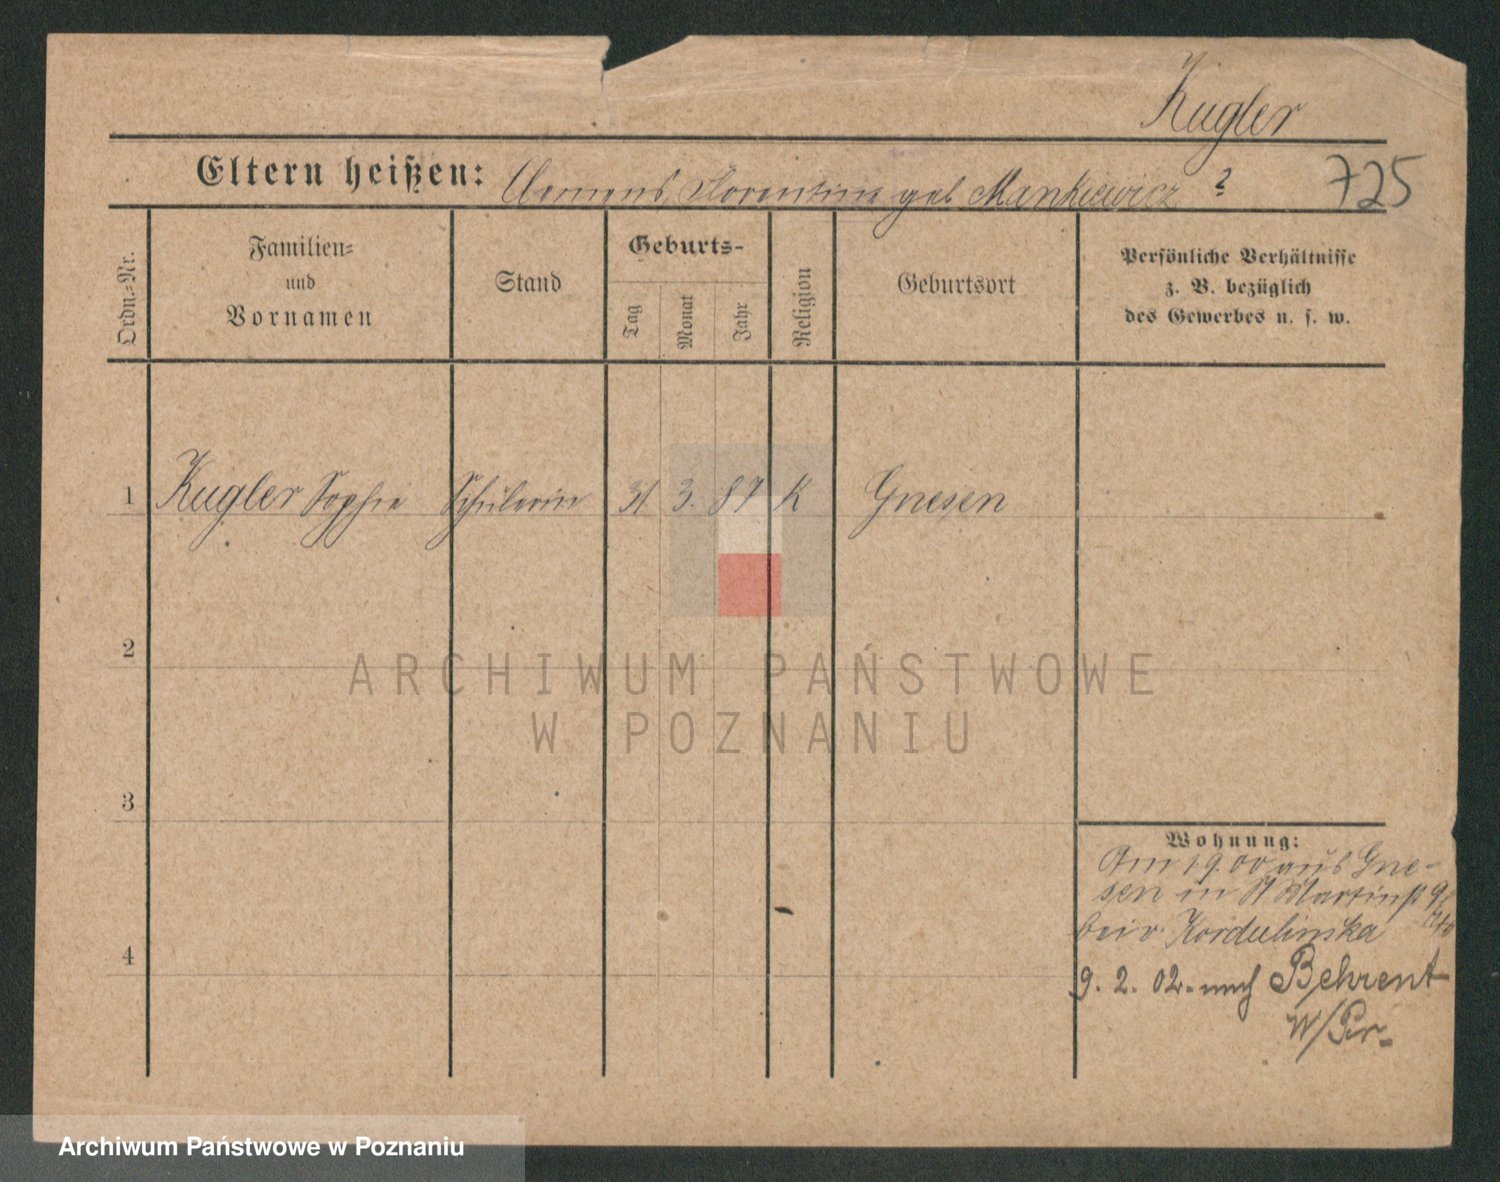 Kugler
Eltern heißen: Clemens, Florentine geb Mankiewicz ?
725
Ordn.-Nr.
Familien-
und
Vornamen
Stand
Geburts-
Tag
Monat
Jahr
Religion
Geburtsort
Persönliche Verhältnisse
z. B. bezüglich
des Gewerbes u. s. w.
1 Kugler Sophie Schülerin 31 3. 87 K Gnesen
2
3
4
Wohnung:
Am 1.9.00 aus Gne-
sen in St Martinst 9
bei v. Kordulinska
9. 2. 02. nach Behrent
W/Pr.
ARCHIWUM PAŃSTWOWE
W POZNANIU
Archiwum Państwowe w Poznaniu